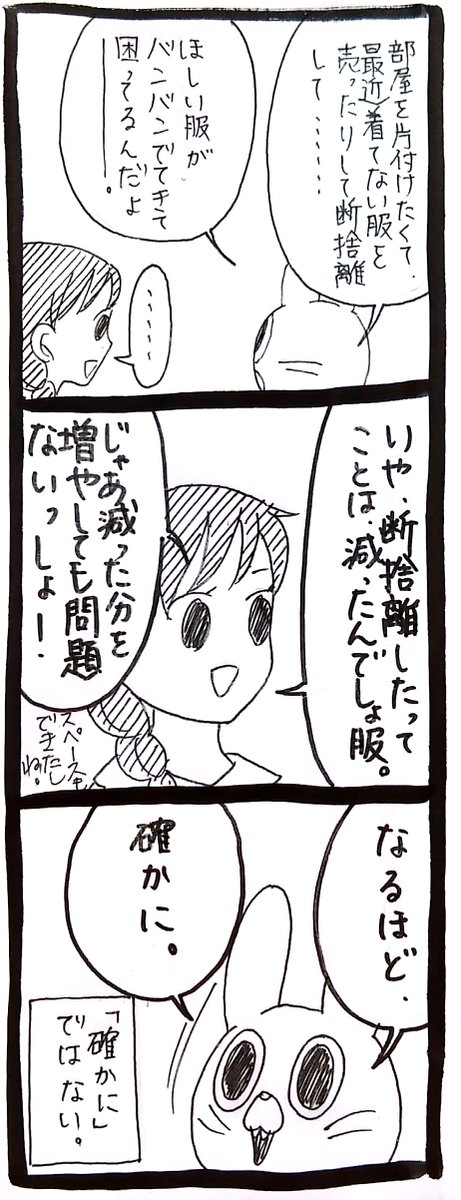 部屋を片付けたくて、
最近着てない服を
売ったりして断捨離
して……
ほしい服が
バンバンでてきて
困ってるんだよ
――。
……
いや、断捨離したって
ことは、減ったんでしょ服。
じゃあ減った分を
増やしても問題
ないっしょ!
スペースも
できたし
ね!
なるほど、
確かに。
「確かに」
ではない。